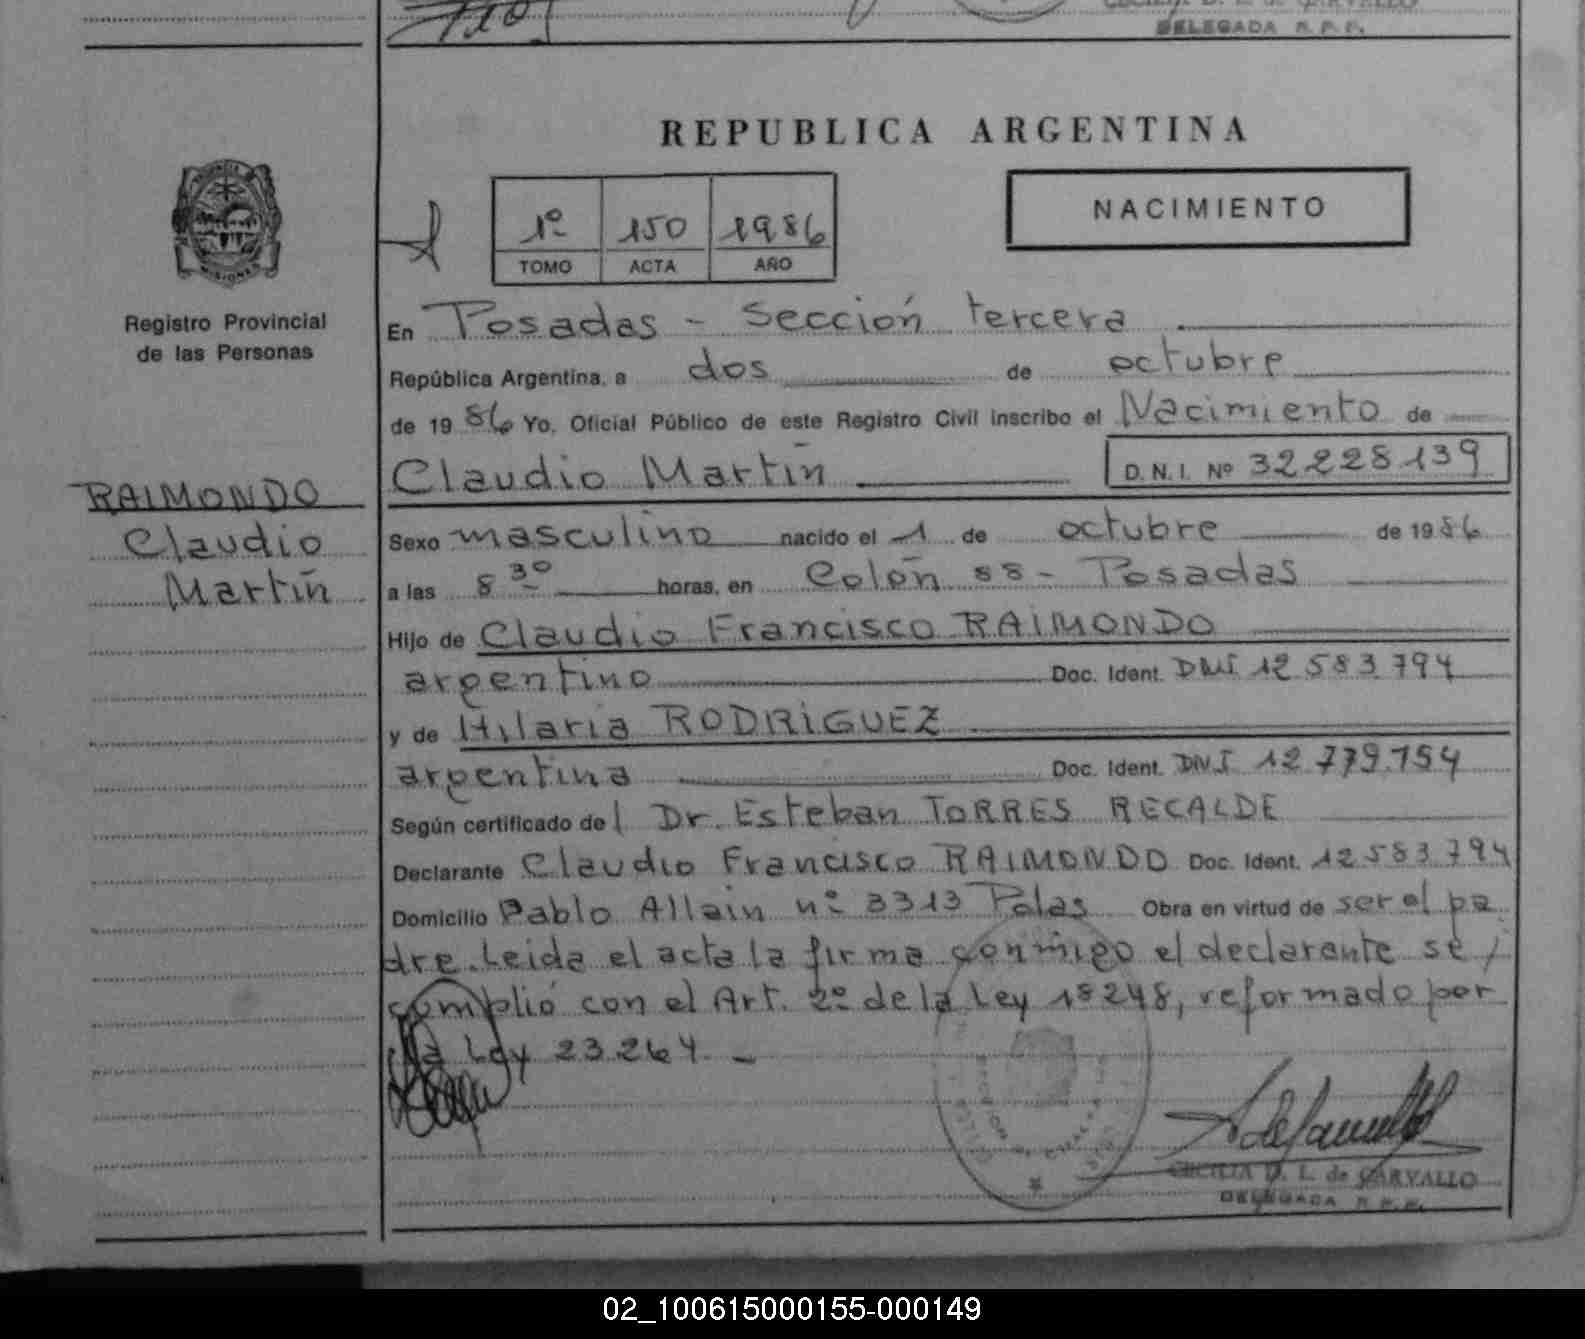 DELEGADA R.P.P.
REPUBLICA ARGENTINA
NACIMIENTO
1º 150 1986
TOMO ACTA AÑO
MISIONES
Registro Provincial
de las Personas
En Posadas - Sección tercera
República Argentina, a dos de octubre
de 1986 Yo, Oficial Público de este Registro Civil inscribo el Nacimiento de
Claudio Martín D.N.I. Nº 32228139
RAIMONDO
Claudio
Martín
Sexo masculino nacido el 1 de octubre de 1986
a las 8 30 horas, en Colón 88 - Posadas
Hijo de Claudio Francisco RAIMONDO
argentino Doc. Ident. DNI 12.583.794
y de Hilaria RODRIGUEZ
argentina Doc. Ident. DNI 12.779.154
Según certificado del Dr. Esteban TORRES RECALDE
Declarante Claudio Francisco RAIMONDO Doc. Ident. 12583.794
Domicilio Pablo Allain nº 3313 Pdas Obra en virtud de ser el pa
dre. Leida el acta la firma conmigo el declarante se
cumplió con el Art. 2º de la Ley 18248, reformado por
la Ley 23.264. -
CECILIA D. L. de CARVALLO
DELEGADA R.P.P.
02_100615000155-000149